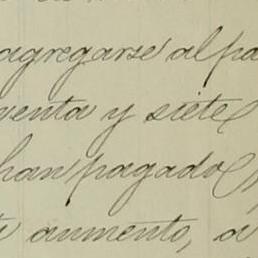 agregarse al pa
venta y siete
han pagado
aumento, a